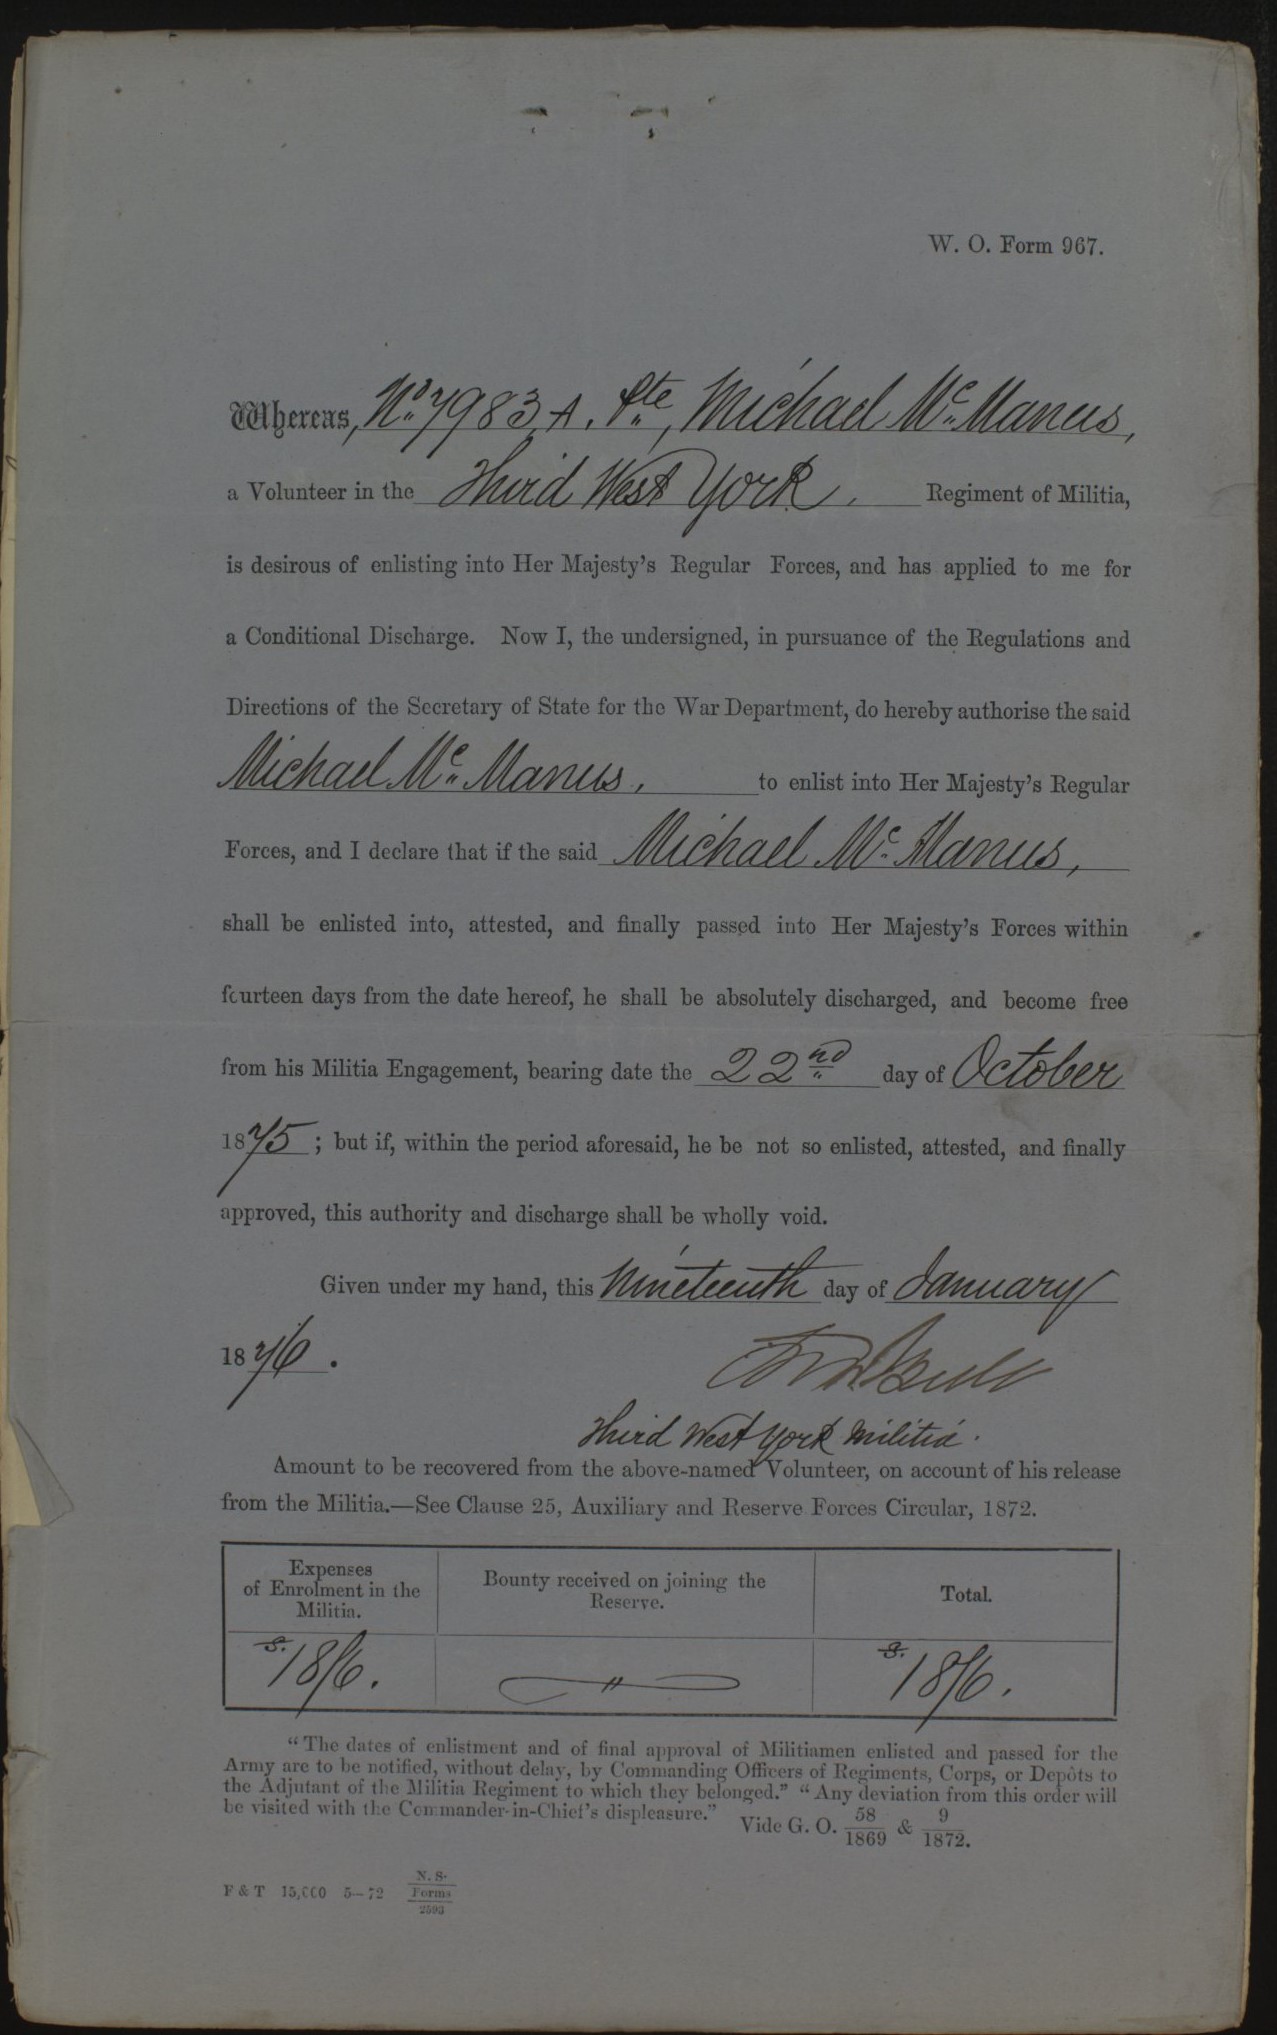 W. O. Form 967.
Whereas, No. 7983 A. Pte, Michael Mc. Manus,
a Volunteer in the Third West York. Regiment of Militia,
is desirous of enlisting into Her Majesty's Regular Forces, and has applied to me for
a Conditional Discharge. Now I, the undersigned, in pursuance of the Regulations and
Directions of the Secretary of State for the War Department, do hereby authorise the said
Michael Mc. Manus, to enlist into Her Majesty's Regular
Forces, and I declare that if the said Michael Mc. Manus,
shall be enlisted into, attested, and finally passed into Her Majesty's Forces within
fourteen days from the date hereof, he shall be absolutely discharged, and become free
from his Militia Engagement, bearing date the 22nd day of October
1875; but if, within the period aforesaid, he be not so enlisted, attested, and finally
approved, this authority and discharge shall be wholly void.
Given under my hand, this Nineteenth day of January
1876.
Third West York Militia.
Amount to be recovered from the above-named Volunteer, on account of his release
from the Militia.—See Clause 25, Auxiliary and Reserve Forces Circular, 1872.
Expenses
of Enrolment in the
Militia.
Bounty received on joining the
Reserve.
Total.
s. 18/6. " s. 18/6.
"The dates of enlistment and of final approval of Militiamen enlisted and passed for the
Army are to be notified, without delay, by Commanding Officers of Regiments, Corps, or Depôts to
the Adjutant of the Militia Regiment to which they belonged." "Any deviation from this order will
be visited with the Commander-in-Chief's displeasure." Vide G. O. 58/1869 & 9/1872.
F & T 15,000 5—72 N. S. Forms 2593